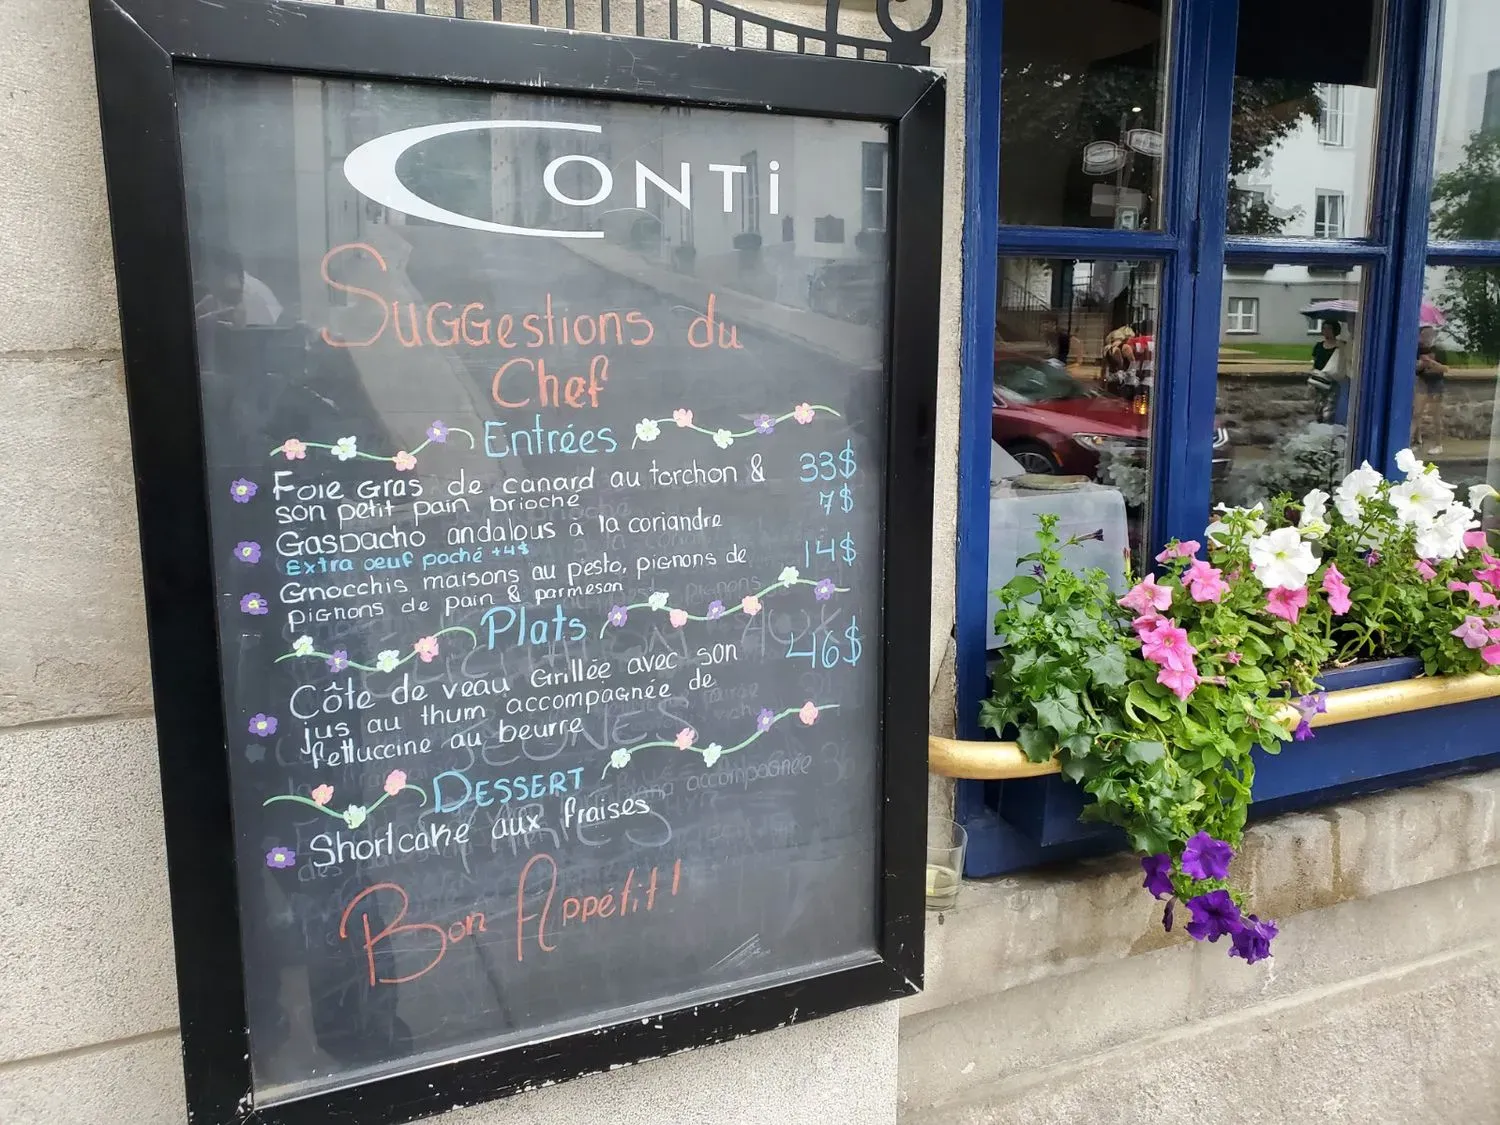 CONTi
SUGGestions du
Chef
Entrées
Foie Gras de canard au torchon & 33$
son petit pain brioché 7$
Gasbacho andalous à la coriandre
Extra oeuf poché +4$
Gnocchis maisons au pesto, pignons de 14$
pignons de pain & parmeson
Plats
Côte de veau Grillée avec son 46$
jus au thum accompagnée de
fettuccine au beurre
DESSERT
Shortcake aux fraises
Bon Appétit!